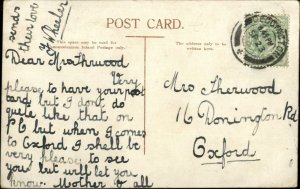 sends
their love
POST CARD.
This space may be used for
Communication Inland Postage only.
The address only to be
written here.
Dear Mrs Thruwood
Very
please to have your post
card but I don't do
quite like that on
P C but when I come
to Oxford I shall be
very please to see
you but will let you
know. Mother & all
Mrs Sherwood
16 Donnington Rd
Oxford